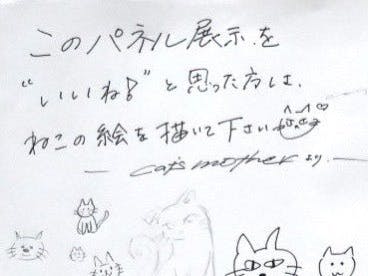 このパネル展示を
"いいね!"と思った方は、
ねこの絵を描いて下さい
— cat's mother より —